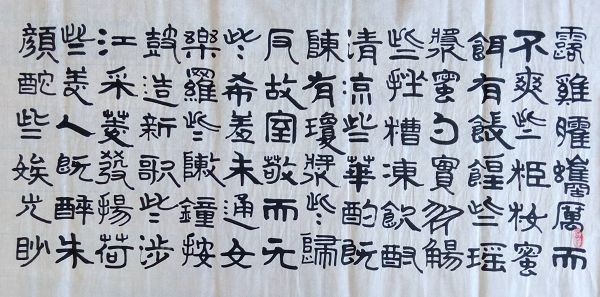 露雞臛蠵厲而
不爽些粔籹蜜
餌有餦餭些瑶
漿蜜勺實羽觴
些挫糟凍飲酎
清涼些華酌既
陳有瓊漿些歸
反故室敬而无
些希羞未通女
樂羅些敶鐘按
鼓造新歌些涉
江采菱發揚荷
些美人既醉朱
顏酡些娭光眇